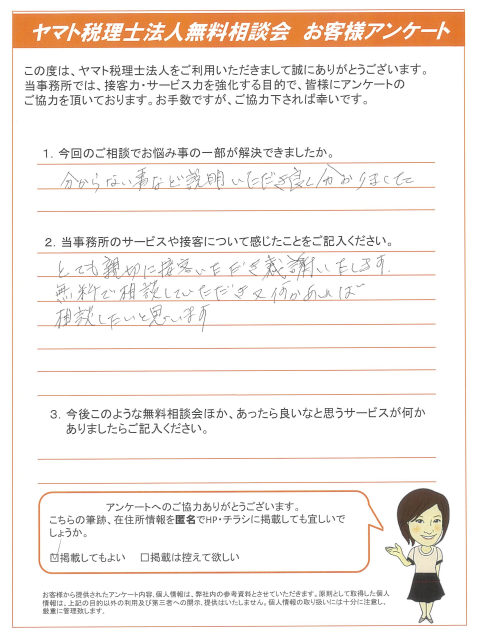 ヤマト税理士法人無料相談会 お客様アンケート
この度は、ヤマト税理士法人をご利用いただきまして誠にありがとうございます。
当事務所では、接客力・サービス力を強化する目的で、皆様にアンケートの
ご協力を頂いております。お手数ですが、ご協力下されば幸いです。
1．今回のご相談でお悩み事の一部が解決できましたか。
分からない事など説明いただき良く分かりました
2．当事務所のサービスや接客について感じたことをご記入ください。
とても親切に接客いただき感謝いたします.
無料で相談していただき又何かあれば
相談したいと思います
3．今後このような無料相談会ほか、あったら良いなと思うサービスが何か
ありましたらご記入ください。
アンケートへのご協力ありがとうございます。
こちらの筆跡、在住所情報を匿名でHP・チラシに掲載しても宜しいで
しょうか。
☑掲載してもよい □掲載は控えて欲しい
お客様から提供されたアンケート内容、個人情報は、弊社内の参考資料とさせていただきます。原則として取得した個人
情報は、上記の目的以外の利用及び第三者への開示、提供はいたしません。個人情報の取り扱いには十分に注意し、
厳重に管理致します。